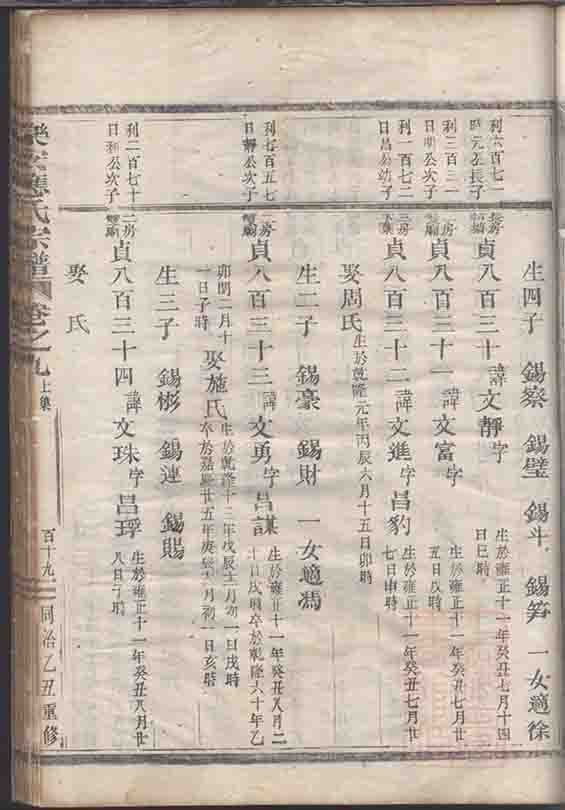 生四子 錫察 錫璧 錫斗 錫筍 一女適徐
利六百七一
曰元公長子
貞八百三十 諱文靜字
生於雍正十一年癸丑七月十四
日巳時
利三百三一
曰明公次子
貞八百三十一 諱文富字
生於雍正十一年癸丑七月廿
五日戌時
利一百七二
曰昌公幼子
貞八百三十二 諱文進字呂豹
生於雍正十一年癸丑七月廿
七日申時
娶周氏
生於乾隆元年丙辰六月十五日卯時
生二子 錫豪 錫財 一女適馮
利七百五七
公次子
貞八百三十三 諱文勇字呂謀
生於雍正十一年癸丑八月二
十日戌時卒於乾隆六十年乙
卯閏二月十
一日子時
娶施氏
生於乾隆十三年戊辰十一月初一日戌時
卒於嘉慶廿五年庚辰六月初一日亥時
生三子 錫彬 錫連 錫賜
利二百七十
公次子
二房
貞八百三十四 諱文珠字呂琈
生於雍正十一年癸丑八月廿
八日子時
娶氏
應氏宗譜 卷之九 上集 百十九 同治乙丑重修